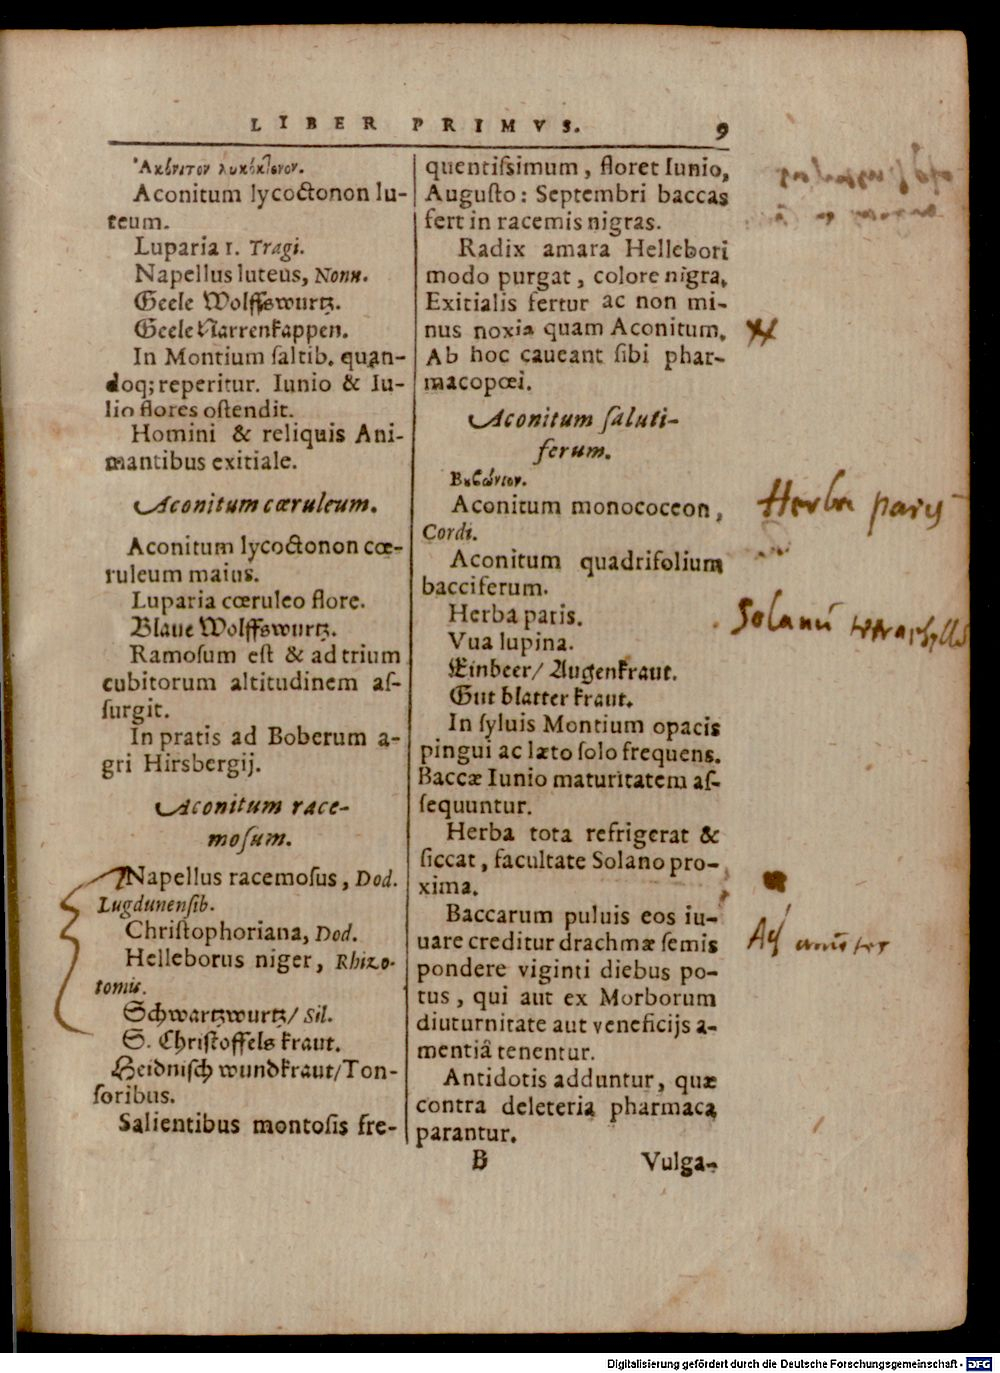 LIBER PRIMVS. 9
Ἀκόνιτον λυκόκτονον.
Aconitum lycoctonon lu-
teum.
Luparia 1. Tragi.
Napellus luteus, Nonn.
Geele Wolffswurtz.
Geele Narrenkappen.
In Montium ſaltib. quan-
doq; reperitur. Iunio & Iu-
lio flores oſtendit.
Homini & reliquis Ani-
mantibus exitiale.
Aconitum cœruleum.
Aconitum lycoctonon cœ-
ruleum maius.
Luparia cœruleo flore.
Blaue Wolffswurtz.
Ramoſum eſt & ad trium
cubitorum altitudinem aſ-
ſurgit.
In pratis ad Boberum a-
gri Hirsbergij.
Aconitum race-
moſum.
Napellus racemoſus, Dod.
Lugdunenſib.
Chriſtophoriana, Dod.
Helleborus niger, Rhizo-
tomis.
Schwartzwurtz/ Sil.
S. Chriſtoffels kraut.
Heidniſch wundkraut/ Ton-
ſoribus.
Salientibus montoſis fre-
quentiſsimum, floret Iunio,
Auguſto: Septembri baccas
fert in racemis nigras.
Radix amara Hellebori
modo purgat, colore nigra.
Exitialis fertur ac non mi-
nus noxia quam Aconitum.
Ab hoc caueant ſibi phar-
macopœi.
Aconitum ſaluti-
ferum.
Aconitum monococcon,
Cordi.
Aconitum quadrifolium
bacciferum.
Herba paris.
Vua lupina.
Einbeer/ Augenkraut.
Gut blatter kraut.
In ſyluis Montium opacis
pingui ac læto ſolo frequens.
Baccæ Iunio maturitatem aſ-
ſequuntur.
Herba tota refrigerat &
ſiccat, facultate Solano pro-
xima.
Baccarum puluis eos iu-
uare creditur drachmæ ſemis
pondere viginti diebus po-
tus, qui aut ex Morborum
diuturnitate aut veneficijs a-
mentiâ tenentur.
Antidotis adduntur, quæ
contra deleteria pharmaca
parantur.
B Vulga-
Herba parys
Solanū
Digitalisierung gefördert durch die Deutsche Forschungsgemeinschaft - DFG